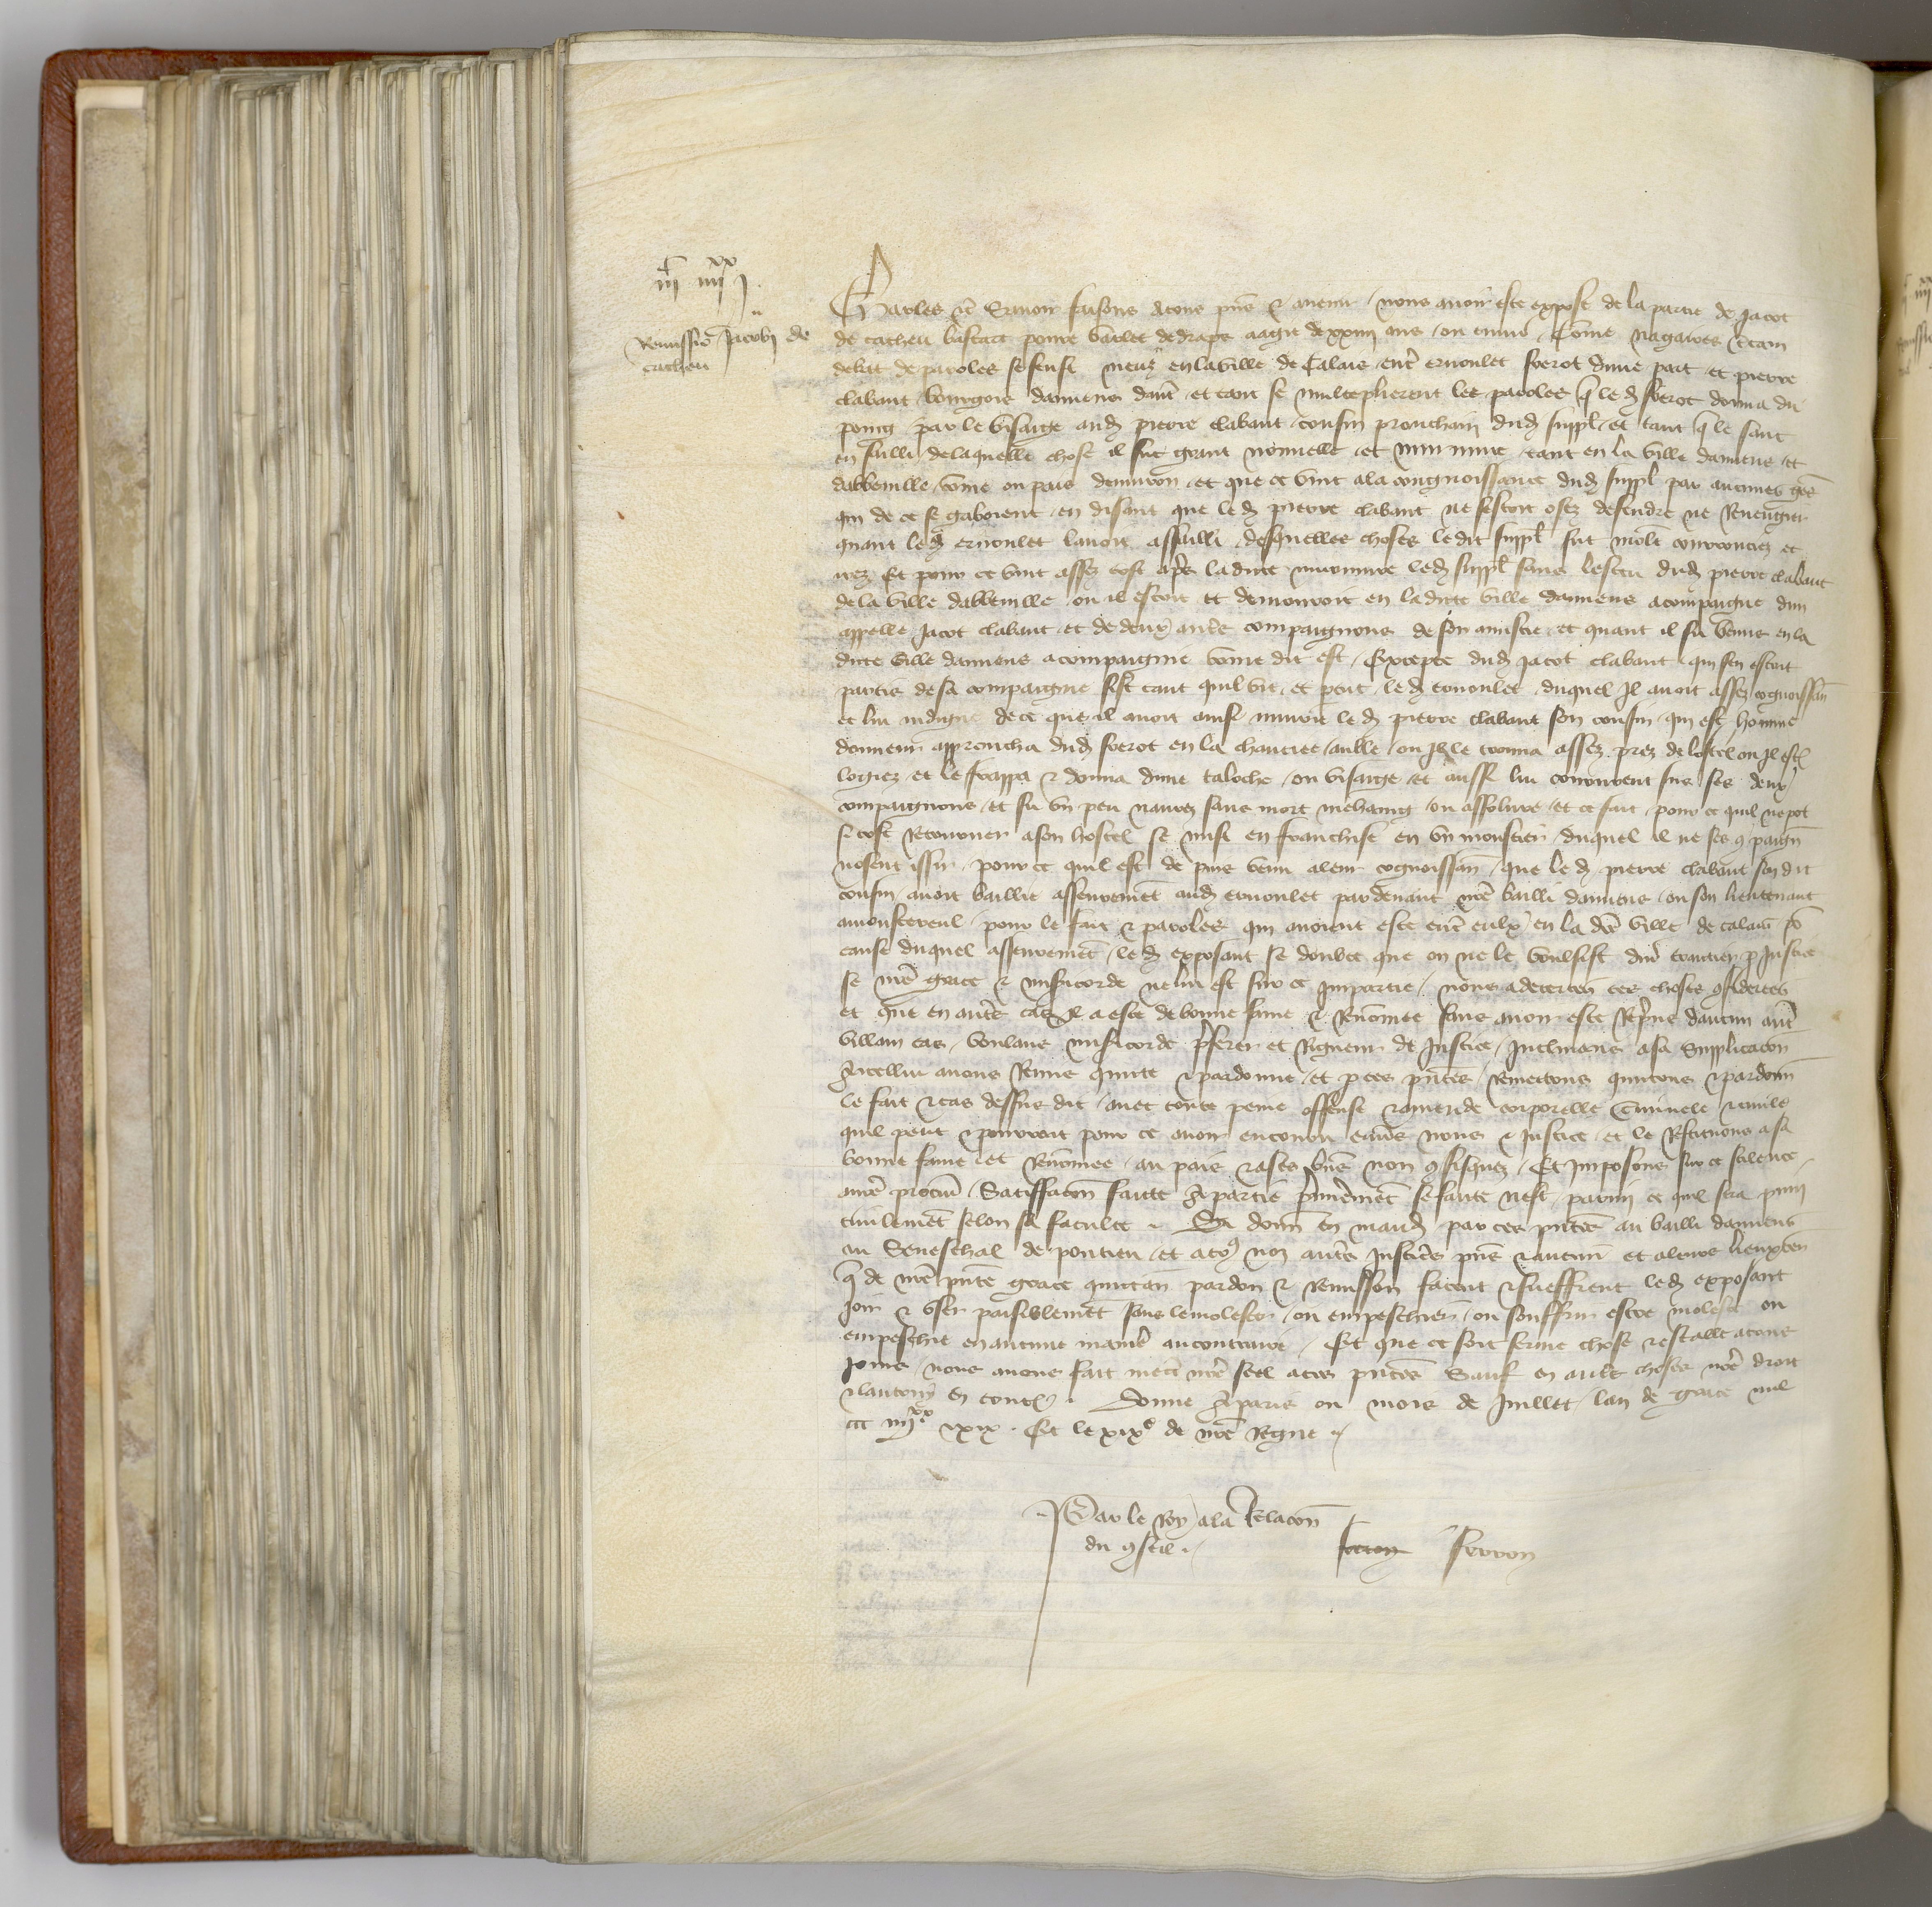 iijc iiijxx j
Remissio Jacobi de
cacheu
Charles etc Savoir faisons atous pns et avenir nous avoir este expose de la partie de Jacot
de cacheu bastart povre varlet de draps aagie de xxiiij ans ou environ Come nagaires certain
debat de paroles se feust meuz en la ville de Calais entre ernoulet fverot dune part et pierre
clabaut bourgois damiens dautre et tant se multeplierent les paroles que led fverot donna du
poing par le visaige aud pierre clabaut cousin prouchain dud suppl et tant que le sanc
en sailli de laquelle chose il fut grant nouvelle et murmure tant en la ville damiens et
dabbeville come ou pais denviron et que ce vint ala congnoissance dud suppl par aucunes gens
qui de ce se gaboient en disant que led pierre clabaut ne sestoit osez defendre ne revengier
quant led ernoulet lavoit assailli desquelles choses ledit suppl fut molt courrouciez et
irez Et pour ce vint assez tost apres ladicte murmure led suppl sans lesceu dud pierre clabaut
de la ville dabbeville ou il estoit et demouroit en ladicte ville damiens acompaigne dun
appelle Jacot clabaut et de deux autres compaignons de son amistie et quant il fu venus en la
dicte ville damiens acompaignie come dit est Excepte dud Jacot clabaut qui sen estoit
partis de sa compaignie fist tant quil vit et peut led ernoulet duquel Il avoit assez cognoissance
et lui indigne de ce que il avoit ainsi injurie led pierre clabaut son cousin qui est homme
donneur approucha dud fverot en la chauciee au ble ou Il le trouva assez prez de lostel ou Il est
logiez et le frappa et donna dune taloche ou visaige et aussi lui coururent sus ses deux
compaignons et fu un peu navrez sans mort mehaing ou affolure et ce fait pour ce quil ne pot
si tost retourner a son hostel se mist en franchise en un moustier duquel il ne ses compaign
nosent issir pour ce quil est de puis venu aleur cognoissance que led pierre clabaut son dit
cousin avoit baillie asseurement aud ernoulet par devant nre bailli damiens ou son lieutenant
amonstereul pour le fait et paroles qui avoient este entre eulx en la dce ville de calais pour
cause duquel asseurement led exposant se doubte que on ne le voulsist dur traictier par Justice
se nre grace et misericorde ne lui est sur ce Impartie nous adecertes ces choses considerees
et que en autres cas Il a este de bonne fame et renomee sans avoir este repris daucun autre
villain cas voulans misericorde preferer et rigueur de Justice Inclinans asa Supplicacon
A Icellui avons remis quicte et pardonne et par ces pntes remettons quictons et pardonn
le fait et cas dessus dit avec toute peine offense et amende corporelle criminele et civile
quil peut et pourroit pour ce avoir encouru envers nous et Justice et le restituons asa
bonne fame et renomee au pais et ases biens non confisquez Et Imposons sur ce silence
anre procur Satisffacon faicte A partie premierement se faicte nest parmi ce quil sera puni
civilement selon sa faculte Si donn en mand par ces pntes au bailli damiens
au Seneschal de pontieu et atous noz autres Justiciers pns et avenir et aleurs lieuxten
que de nre pnte grace quictan pardon et remission facent et sueffrent led exposant
joir et user paisiblement sans le molester ou empeschier ou souffrir estre moleste ou
empeschie en aucune maniere au contraire Et que ce soit ferme chose et estable atous
jours nous avons fait mectre nre seel aces pntes Sauf en autres choses nre droit
et lautruy en toutes Donne A paris ou mois de Juillet lan de grace mil
ccc iiijxx xix Et le xixe de nre regne
Par le Roy ala Relacon
du conseil
ferron